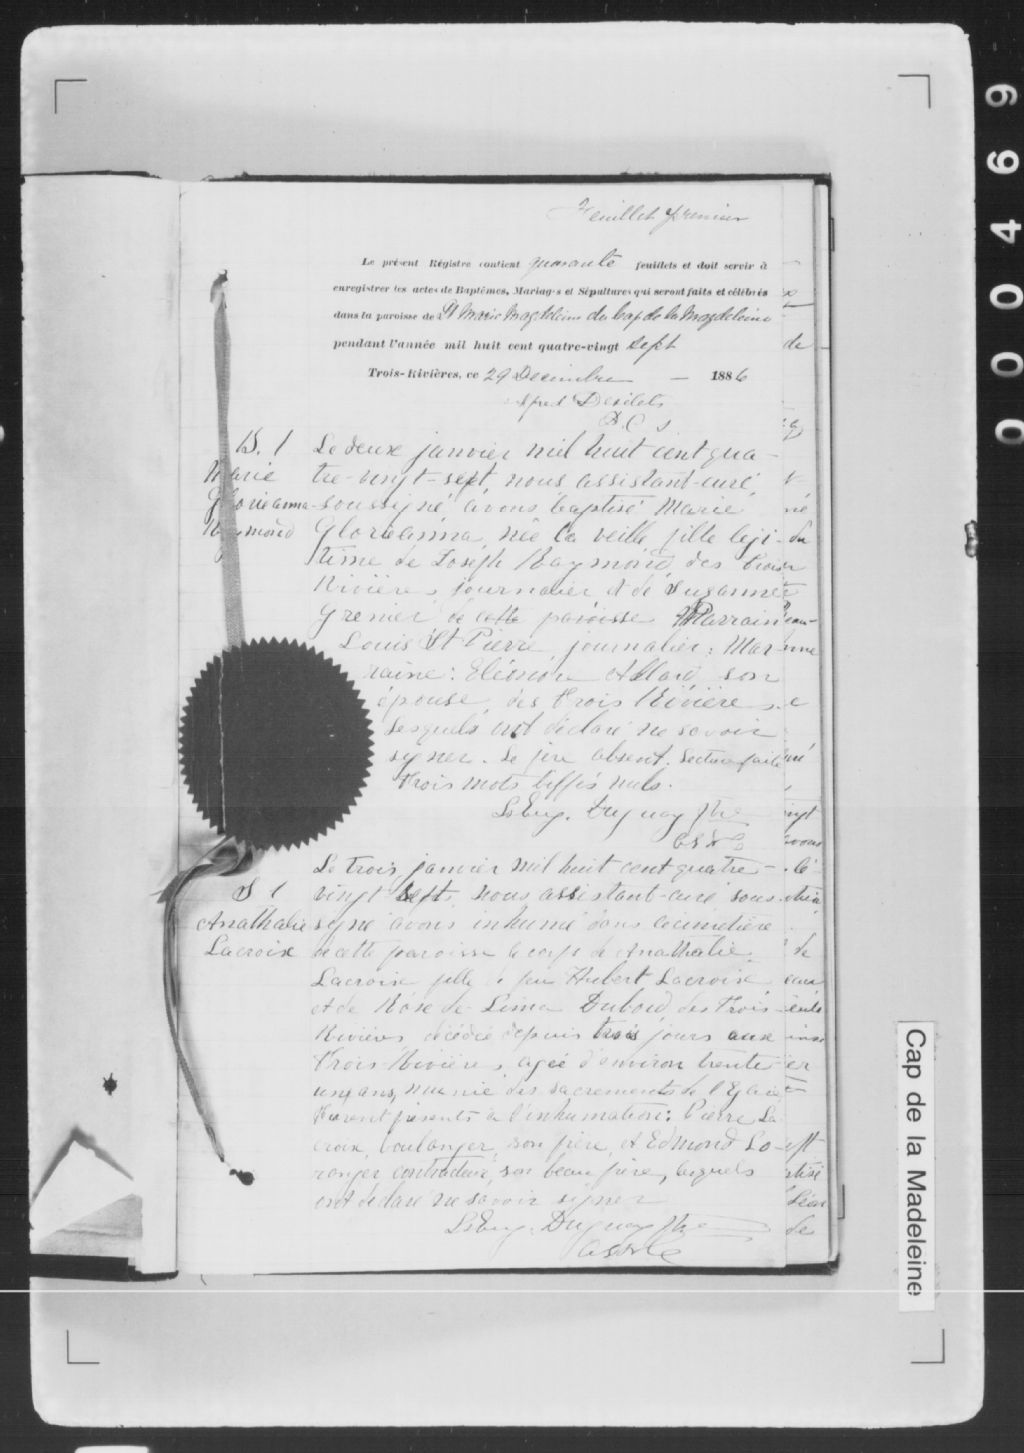 Feuillet premier
Le présent Régistre contient quarante feuillets et doit servir à
enregistrer les actes de Baptêmes, Mariages et Sépultures qui seront faits et célébrés
dans la paroisse de St Marie Magdeleine du Cap de la Magdeleine
pendant l'année mil huit cent quatre-vingt sept
Trois-Rivières, ce 29 Decembre — 1886
Desilets
P. C. S.
B. 1
Marie
Glorieanna
Raymond
Le deux janvier mil huit cent qua-
tre-vingt-sept, nous assistant-curé
soussigné avons baptisé Marie
Glorieanna, née la veille, fille légi-
time de Joseph Raymond, des Trois
Rivières, journalier et de Suzanne
Grenier de cette paroisse Parrain
Louis St Pierre, journalier; Mar-
raine: Eléonore Allard, son
épouse, des Trois Rivières,
lesquels ont déclaré ne savoir
signer. Le père absent. Lecture faite
Trois mots biffés nuls.
Ls Eug. Duguay Ptre
S 1
Anathalie
Lacroix
Le trois janvier mil huit cent quatre-
vingt sept, nous assistant-curé sous-
signé avons inhumé dans cimetière
de cette paroisse le corps de Anathalie
Lacroix fille de feu Hubert Lacroix
et de Rose de Lima Dubord, des Trois-
Rivières décédée depuis trois jours aux
Trois-Rivières, agée d'environ trente-
un ans, munie des sacrements de l'Eglise
Furent présents à l'inhumation: Pierre La-
croix, boulanger, son frère, et Edmond Lo-
ranger contracteur, son beau frère, lesquels
ont déclaré ne savoir signer
Ls Eug. Duguay Ptre
Cap de la Madeleine
000469